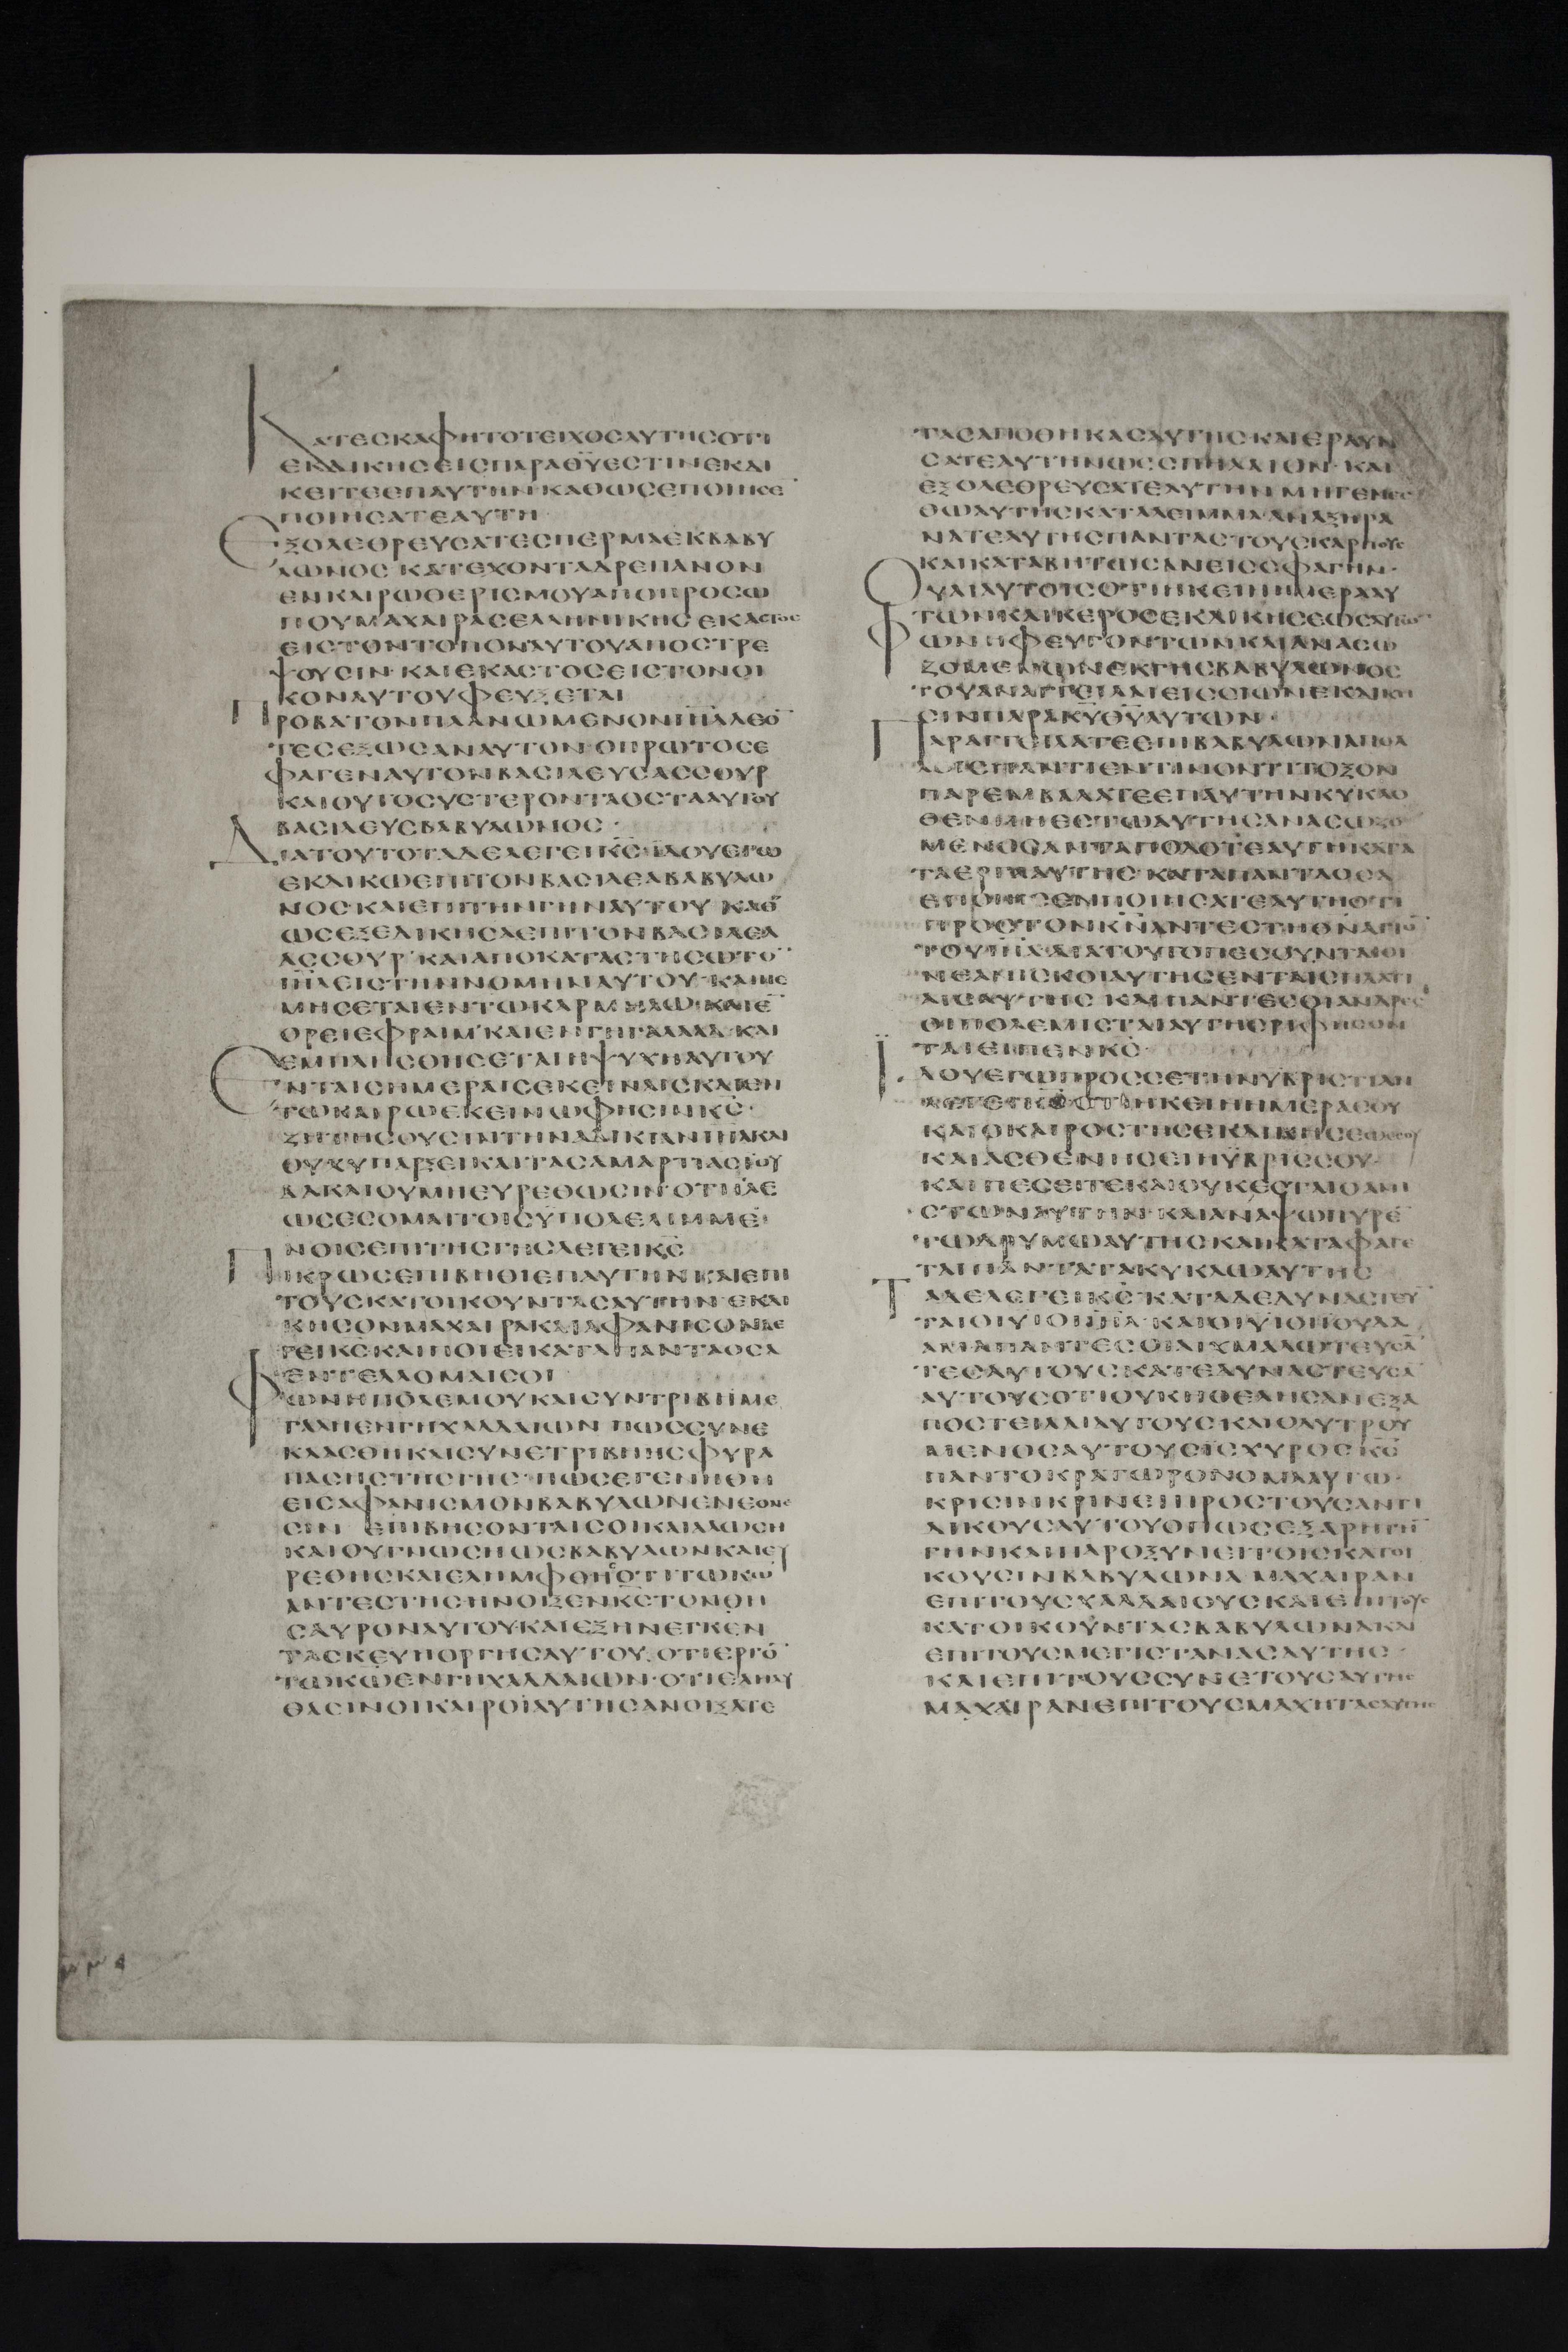 ΚΑΤΕСΚΑΦΗΤΟΤΕΙΧΟСΑΥΤΗСΟΤΙ
ΕΚΔΙΚΗСΕΙСΠΑΡΑΘΥΕСΤΙΝΕΚΔΙ
ΚΕΙΤΕΕΠΑΥΤΗΝ·ΚΑΘΩСΕΠΟΙΗСΕ
ΠΟΙΗСΑΤΕΑΥΤΗ·
ΕΞΟΛΕΘΡΕΥСΑΤΕСΠΕΡΜΑΕΚΒΑΒΥ
ΛΩΝΟС·ΚΑΤΕΧΟΝΤΑΔΡΕΠΑΝΟΝ
ΕΝΚΑΙΡΩΘΕΡΙСΜΟΥΑΠΟΠΡΟСΩ
ΠΟΥΜΑΧΑΙΡΑСΕΛΛΗΝΙΚΗС·ΕΚΑСΤΟС
ΕΙСΤΟΝΤΟΠΟΝΑΥΤΟΥΑΠΟСΤΡΕ
ΨΟΥСΙΝ·ΚΑΙΕΚΑСΤΟСΕΙСΤΟΝΟΙ
ΚΟΝΑΥΤΟΥΦΕΥΞΕΤΑΙ
ΠΡΟΒΑΤΟΝΠΛΑΝΩΜΕΝΟΝΙΗΛΛΕΟ
ΤΕСΕΞΩСΑΝΑΥΤΟΝ·ΟΠΡΩΤΟСΕ
ΦΑΓΕΝΑΥΤΟΝΒΑСΙΛΕΥСΑССΟΥΡ
ΚΑΙΟΥΤΟСΥСΤΕΡΟΝΤΑΟСΤΑΑΥΤΟΥ
ΒΑСΙΛΕΥСΒΑΒΥΛΩΝΟС·
ΔΙΑΤΟΥΤΟΤΑΔΕΛΕΓΕΙΚС·ΙΔΟΥΕΓΩ
ΕΚΔΙΚΩΕΠΙΤΟΝΒΑСΙΛΕΑΒΑΒΥΛΩ
ΝΟСΚΑΙΕΠΙΤΗΝΓΗΝΑΥΤΟΥ·ΚΑΘ
ΩСΕΞΕΔΙΚΗСΑΕΠΙΤΟΝΒΑСΙΛΕΑ
ΑССΟΥΡ·ΚΑΙΑΠΟΚΑΤΑСΤΗСΩΤΟ
ΙΗΛΕΙСΤΗΝΝΟΜΗΝΑΥΤΟΥ·ΚΑΙΝΕ
ΜΗСΕΤΑΙΕΝΤΩΚΑΡΜΗΛΩ·ΚΑΙΕ
ΟΡΕΙΕΦΡΑΙΜ·ΚΑΙΕΝΓΗΓΑΛΑΑΔ·ΚΑΙ
ΕΜΠΛΗСΘΗСΕΤΑΙΗΨΥΧΗΑΥΤΟΥ
ΕΝΤΑΙСΗΜΕΡΑΙСΕΚΕΙΝΑΙСΚΑΙΕΝ
ΤΩΚΑΙΡΩΕΚΕΙΝΩΦΗСΙΝΚС·
ΖΗΤΗСΟΥСΙΝΤΗΝΑΔΙΚΙΑΝΙΗΛΚΑΙ
ΟΥΧΥΠΑΡΞΕΙΚΑΙΤΑСΑΜΑΡΤΙΑСΙΟΥ
ΔΑΚΑΙΟΥΜΗΕΥΡΕΘΩСΙΝ·ΟΤΙΙΛΕ
ΩСΕСΟΜΑΙΤΟΙСΥΠΟΛΕΛΙΜΜΕ
ΝΟΙСΕΠΙΤΗСΓΗСΛΕΓΕΙΚС
ΠΙΚΡΩСΕΠΙΒΗΘΙΕΠΑΥΤΗΝΚΑΙΕΠΙ
ΤΟΥСΚΑΤΟΙΚΟΥΝΤΑСΑΥΤΗΝ·ΕΚΔΙ
ΚΗСΟΝΜΑΧΑΙΡΑΚΑΙΑΦΑΝΙСΟΝΛΕ
ΓΕΙΚСΚΑΙΠΟΙΕΙΚΑΤΑΠΑΝΤΑΟСΑ
ΕΝΤΕΛΛΟΜΑΙСΟΙ
ΦΩΝΗΠΟΛΕΜΟΥΚΑΙСΥΝΤΡΙΒΗΜΕ
ΓΑΛΗΕΝΓΗΧΑΛΔΑΙΩΝ ΠΩССΥΝΕ
ΚΛΑСΘΗΚΑΙСΥΝΕΤΡΙΒΗΗСΦΥΡΑ
ΠΑСΗСΤΗСΓΗС·ΠΩСΕΓΕΝΗΘΗ
ΕΙСΑΦΑΝΙСΜΟΝΒΑΒΥΛΩΝΕΝΕΘΝΕ
СΙΝ ΕΠΙΒΗСΟΝΤΑΙСΟΙΚΑΙΑΛΩСΗ
ΚΑΙΟΥΓΝΩСΗΩСΒΑΒΥΛΩΝΚΑΙΕΥ
ΡΕΘΗСΚΑΙΕΛΗΜΦΘΗСΟΤΙΤΩΚΩ
ΑΝΤΕСΤΗСΗΝΟΙΞΕΝΚСΤΟΝΘΗ
СΑΥΡΟΝΑΥΤΟΥΚΑΙΕΞΗΝΕΓΚΕΝ
ΤΑСΚΕΥΗΟΡΓΗСΑΥΤΟΥ·ΟΤΙΕΡΓΟ
ΤΩΚΩΕΝΓΗΧΑΛΔΑΙΩΝ·ΟΤΙΕΛΗΛΥ
ΘΑСΙΝΟΙΚΑΙΡΟΙΑΥΤΗСΑΝΟΙΞΑΤΕ
ΤΑСΑΠΟΘΗΚΑСΑΥΤΗС·ΚΑΙΕΡΑΥΝ
СΑΤΕΑΥΤΗΝΩССΠΗΛΑΙΟΝ·ΚΑΙ
ΕΞΟΛΕΘΡΕΥСΑΤΕΑΥΤΗΝΜΗΓΕΝΕС
ΘΩΑΥΤΗСΚΑΤΑΛΕΙΜΜΑ·ΑΝΑΞΗΡΑ
ΝΑΤΕΑΥΤΗСΠΑΝΤΑСΤΟΥСΚΑΡΠΟΥС
ΚΑΙΚΑΤΑΒΗΤΩСΑΝΕΙССΦΑΓΗΝ·
ΟΥΑΙΑΥΤΟΙСΟΤΙΗΚΕΙΗΗΜΕΡΑΑΥ
ΤΩΝΚΑΙΚΕΡΟСΕΚΔΙΚΗСΕΩСΑΥΤΩ
ΦΩΝΗΦΕΥΓΟΝΤΩΝΚΑΙΑΝΑСΩ
ΖΟΜΕΝΩΝΕΚΓΗСΒΑΒΥΛΩΝΟС
ΤΟΥΑΝΑΓΓΙΛΑΙΕΙССΙΩΝΕΚΔΙΚΗ
СΙΝΠΑΡΑΚΥΘΥΑΥΤΩΝ·
ΠΑΡΑΓΓΕΙΛΑΤΕΕΠΙΒΑΒΥΛΩΝΑΠΟΛ
ΛΟΙСΠΑΝΤΙΕΝΤΙΝΟΝΤΙΤΟΞΟΝ
ΠΑΡΕΜΒΑΛΑΤΕΕΠΑΥΤΗΝΚΥΚΛΟ
ΘΕΝΜΗΕСΤΩΑΥΤΗСΑΝΑСΩΖΟ
ΜΕΝΟСΑΝΤΑΠΟΔΟΤΕΑΥΤΗΚΑΤΑ
ΤΑΕΡΓΑΑΥΤΗС·ΚΑΤΑΠΑΝΤΑΟСΑ
ΕΠΟΙΗСΕΝΠΟΙΗСΑΤΕΑΥΤΗΟΤΙ
ΠΡΟСΤΟΝΚΝΑΝΤΕСΤΗΘΝΑΓΙΟ
ΤΟΥΙΗΛΔΙΑΤΟΥΤΟΠΕСΟΥΝΤΑΙΟΙ
ΝΕΑΝΙСΚΟΙΑΥΤΗСΕΝΤΑΙСΠΛΑΤΙ
ΑΙСΑΥΤΗС ΚΑΙΠΑΝΤΕСΟΙΑΝΔΡΕС
ΟΙΠΟΛΕΜΙСΤΑΙΑΥΤΗСΡΙΦΗСΟΝ
ΤΑΙΕΙΠΕΝΚС·
ΙΔΟΥΕΓΩΠΡΟССΕΤΗΝΥΒΡΙСΤΙΑΝ
ΛΕΓΕΙΚСΟΤΙΗΚΕΙΗΗΜΕΡΑСΟΥ
ΚΑΙΟΚΑΙΡΟСΤΗСΕΚΔΙΚΗСΕΩССΟΥ
ΚΑΙΑСΘΕΝΗСΕΙΗΥΒΡΙССΟΥ·
ΚΑΙΠΕСΕΙΤΕΚΑΙΟΥΚΕСΤΑΙΟΑΝΙ
СΤΩΝΑΥΤΗΝ·ΚΑΙΑΝΑΨΩΠΥΡΕ
ΤΩΔΡΥΜΩΑΥΤΗСΚΑΙΚΑΤΑΦΑΓΕ
ΤΑΙΠΑΝΤΑΤΑΚΥΚΛΩΑΥΤΗС
ΤΑΔΕΛΕΓΕΙΚС·ΚΑΤΑΔΕΔΥΝΑСΤΕΥ
ΤΑΙΟΙΥΙΟΙΙΗΛ·ΚΑΙΟΙΥΙΟΙΙΟΥΔΑ
ΑΜΑΠΑΝΤΕСΟΙΑΙΧΜΑΛΩΤΕΥСΑ
ΤΕСΑΥΤΟΥСΚΑΤΕΔΥΝΑСΤΕΥСΑ
ΑΥΤΟΥСΟΤΙΟΥΚΗΘΕΛΗСΑΝΕΞΑ
ΠΟСΤΕΙΛΑΙΑΥΤΟΥСΚΑΙΟΛΥΤΡΟΥ
ΜΕΝΟСΑΥΤΟΥСΙСΧΥΡΟСΚС
ΠΑΝΤΟΚΡΑΤΩΡΟΝΟΜΑΑΥΤΩ·
ΚΡΙСΙΝΚΡΙΝΕΙΠΡΟСΤΟΥСΑΝΤΙ
ΔΙΚΟΥСΑΥΤΟΥΟΠΩСΕΞΑΡΗΤΗ
ΓΗΝΚΑΙΠΑΡΟΞΥΝΕΙΤΟΙСΚΑΤΟΙ
ΚΟΥСΙΝΒΑΒΥΛΩΝΑ ΜΑΧΑΙΡΑΝ
ΕΠΙΤΟΥСΧΑΛΔΑΙΟΥСΚΑΙΕΠΙΤΟΥС
ΚΑΤΟΙΚΟΥΝΤΑСΒΑΒΥΛΩΝΑΚΑΙ
ΕΠΙΤΟΥСΜΕΓΙСΤΑΝΑСΑΥΤΗС·
ΚΑΙΕΠΙΤΟΥССΥΝΕΤΟΥСΑΥΤΗС
ΜΑΧΑΙΡΑΝΕΠΙΤΟΥСΜΑΧΗΤΑСΑΥΤΗС